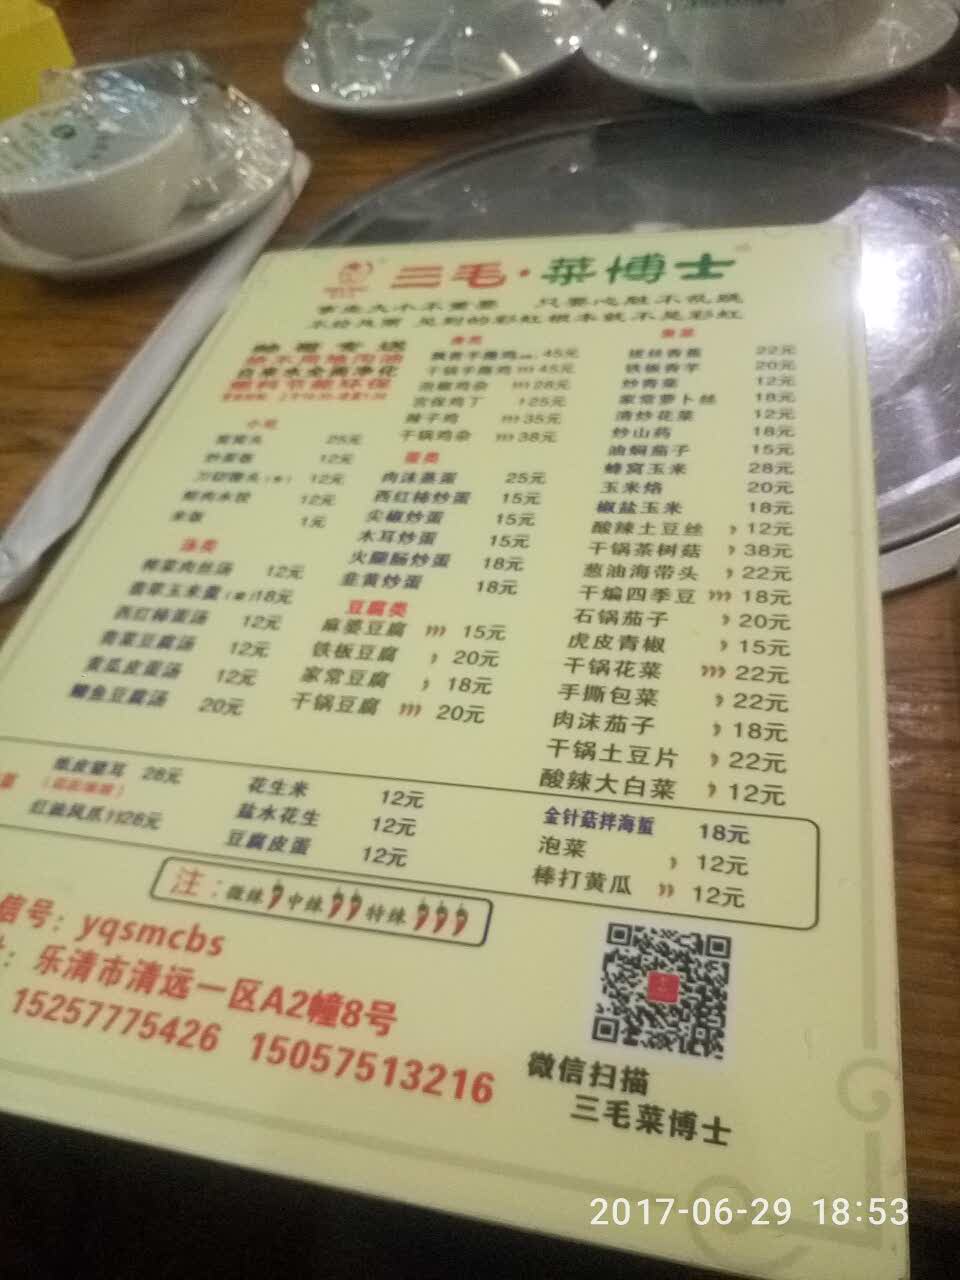 三毛·菜博士
事走大小不重要 只要心脏不乱跳
不经风雨 见到的彩虹根本就不是彩虹
绝不用地沟油
自来水全面净化
燃料节能环保
小吃
25元
炒蛋饭 12元
12元
鲜肉水饺 12元
米饭 1元
汤类
榨菜肉丝汤 12元
翡翠玉米羹 18元
西红柿蛋汤 12元
青菜豆腐汤 12元
黄瓜皮蛋汤 12元
鲫鱼豆腐汤 20元
45元
干锅手撕鸡 45元
泡椒鸡杂 28元
宫保鸡丁 25元
辣子鸡 35元
干锅鸡杂 38元
蛋类
肉沫蒸蛋 25元
西红柿炒蛋 15元
尖椒炒蛋 15元
木耳炒蛋 15元
火腿肠炒蛋 18元
韭黄炒蛋 18元
豆腐类
麻婆豆腐 15元
铁板豆腐 20元
家常豆腐 18元
干锅豆腐 20元
拔丝香蕉 22元
铁板香芋 20元
炒青菜 12元
家常萝卜丝 18元
清炒花菜 12元
炒山药 18元
油焖茄子 15元
蜂窝玉米 28元
玉米烙 20元
椒盐玉米 18元
酸辣土豆丝 12元
干锅茶树菇 38元
葱油海带头 22元
干煸四季豆 18元
石锅茄子 20元
虎皮青椒 15元
干锅花菜 22元
手撕包菜 22元
肉沫茄子 18元
干锅土豆片 22元
酸辣大白菜 12元
菜
28元
红油凤爪 28元
花生米 12元
盐水花生 12元
豆腐皮蛋 12元
金针菇拌海蜇 18元
泡菜 12元
棒打黄瓜 12元
注：微辣 中辣 特辣
信号：yqsmcbs
：乐清市清远一区A2幢8号
15257775426 15057513216
微信扫描
三毛菜博士
2017-06-29 18:53